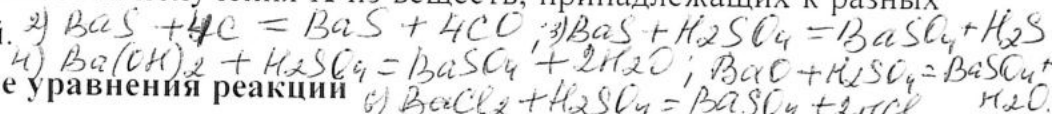 получения X из веществ, принадлежащих к разных
2) BaS + 4C = BaS + 4CO ; 3) BaS + H2SO4 = BaSO4 + H2S
4) Ba(OH)2 + H2SO4 = BaSO4 + 2H2O ; BaO + H2SO4 = BaSO4 + H2O.
е уравнения реакции 6) BaCl2 + H2SO4 = BaSO4 + 2HCl